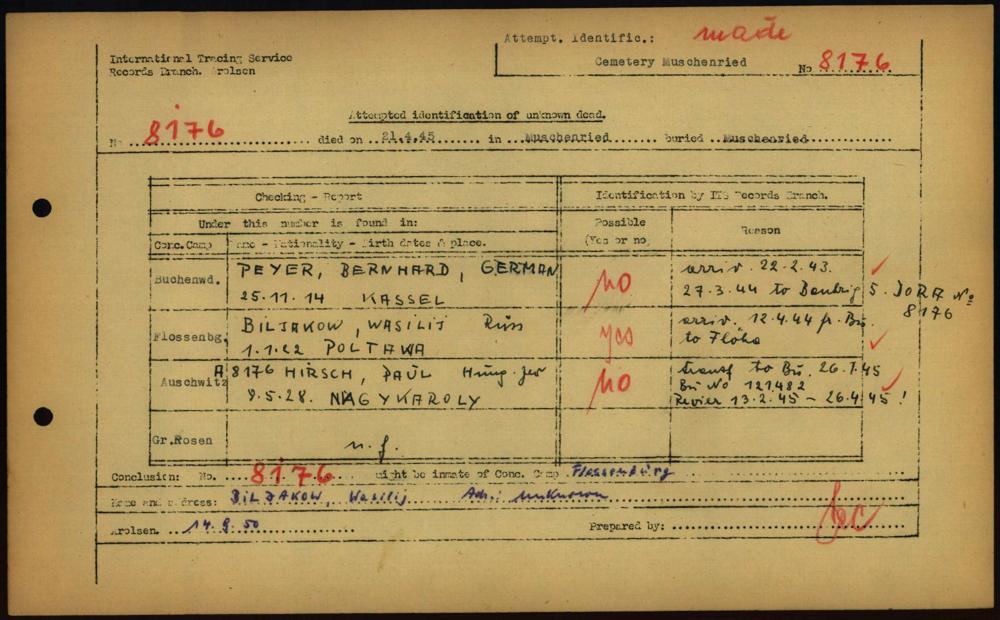 Attempt. Identific.: made
International Tracing Service
Records Branch. Arolsen
Cemetery Muschenried
No 8176
Attempted identification of unknown dead.
No 8176 died on 21.4.45 in Muschenried buried Muschenried
Checking - Report Identification by ITS Records Branch.
Under this number is found in: Possible (Yes or no) Reason
Conc.Camp Name - Nationality - Birth dates & place.
Buchenwd. PEYER, BERNHARD, GERMAN NO arriv. 22.2.43.
25.11.14 KASSEL 27.3.44 to S. DORA No 8176
Flossenbg. BILJAKOW, WASILIJ Russ yes arriv. 12.4.44 fr. Bu.
1.1.22 POLTAWA to Flöha
Auschwitz A 8176 HIRSCH, PAUL Hung. jew NO transf to Bu. 26.1.45
9.5.28. NAGYKAROLY Bu No 121482
Revier 13.2.45 - 26.4.45 !
Gr.Rosen n.f.
Conclusion: No. 8176 might be inmate of Conc. Camp Flossenbürg
Name and address: BILJAKOW, Wasilij Adr.: unknown
Arolsen. 14.9.50 Prepared by: